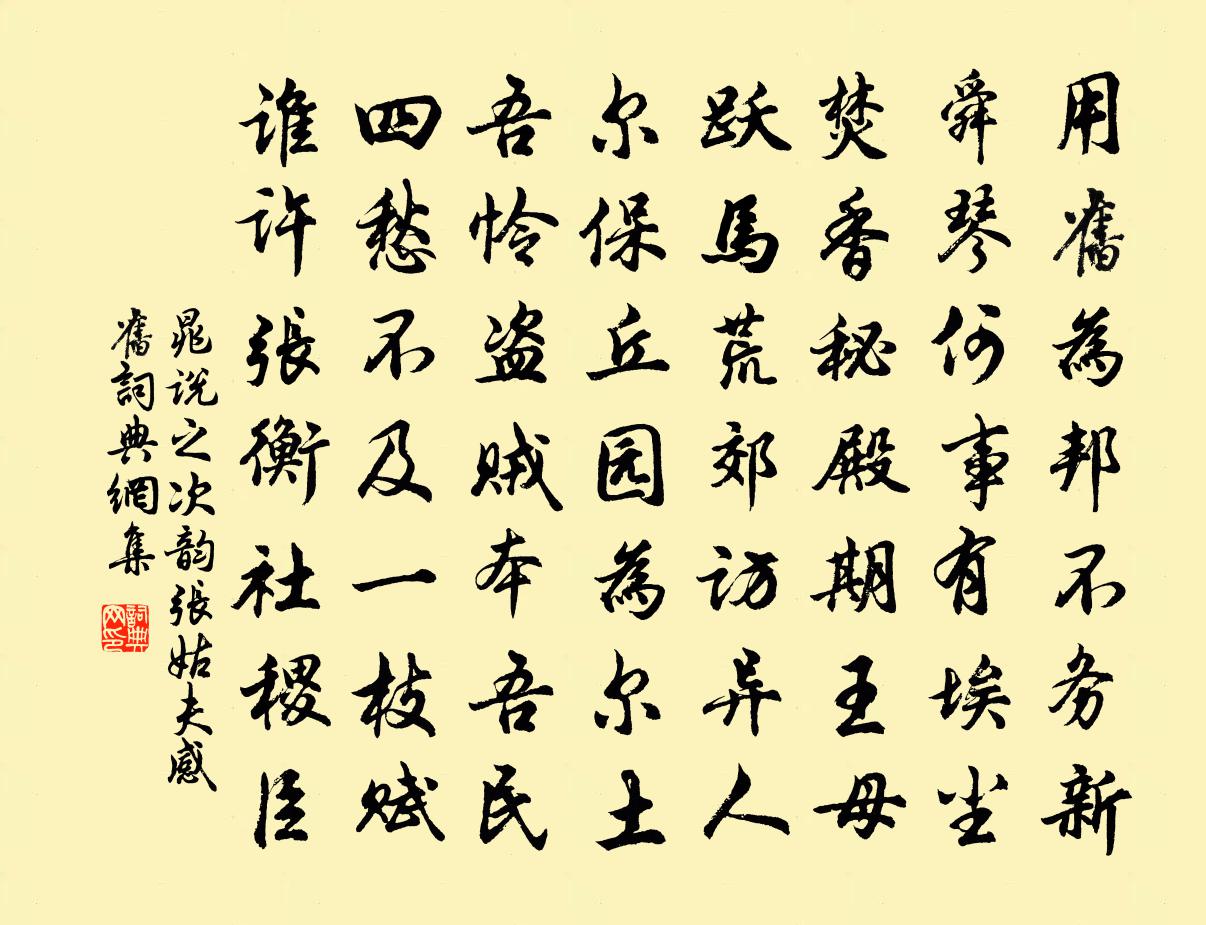 用舊為邦不务新
舜琴何事有埃尘
焚香秘殿期王母
跃馬荒郊访异人
尔保丘园為尔土
吾怜盗贼本吾民
四愁不及一枝赋
谁许張衡社稷臣
晁说之次韵張姑夫感
舊詞典網集
詞典
网印